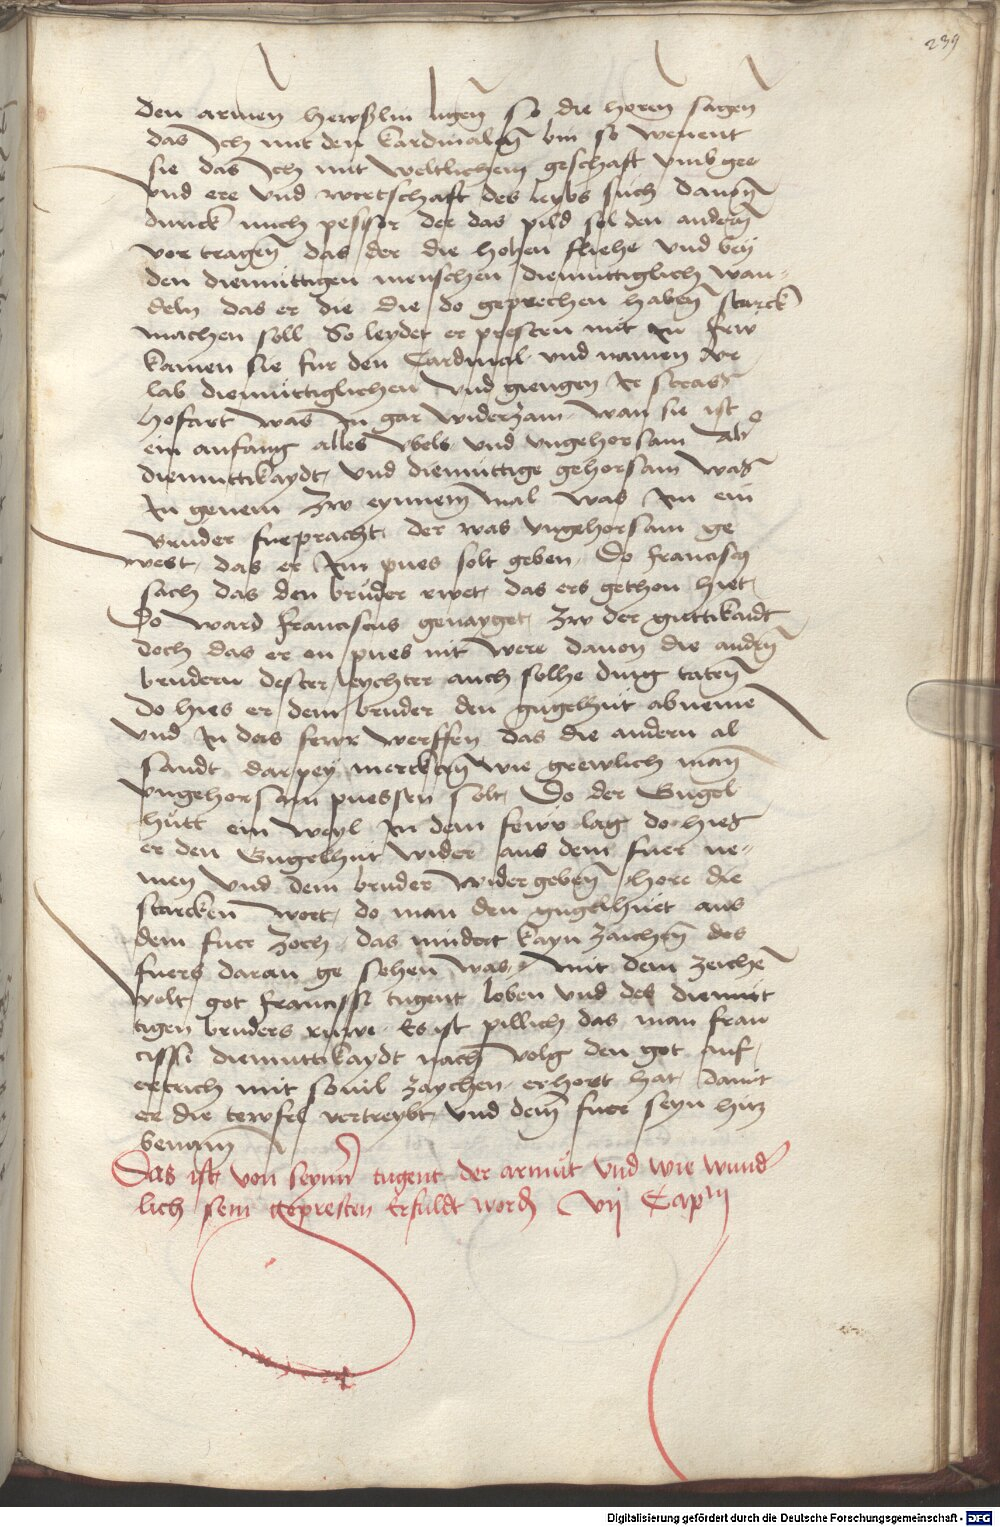 239
den armen hewslin ligen so die horen sagen
das Ich mit den kardinalen bin so wenent
sie das Ich mit weltlichem geschaft vmb gee
vnd ere vnd wirtschaft des leybs such dauon
dunckt mich pesser der das pild sol den andern
vor tragen das der die hohen fliehe vnd bey
den diemuttigen menschen diemuttiglich wan-
deln das er die die do geprechen haben starck
machen soll So leydet er presten mit In
kamen sie fur den Cardinal vnd namen vr
lab diemuttiglichen vnd giengen Ir stras
hofart was In gar widerzam wan sie ist
ein anfang alles vbels vnd vngehorsam
diemuttikaydt vnd diemuttige gehorsam was
In genem zw eynnem mal was Im ein
bruder furpracht der was vngehorsam ge
west das er Im pues solt geben Do franciscus
sach das den bruder rwet das ers gethon hiet
Do ward franciscus genayget zw der guttikaidt
doch das er on pues nit were dauon die andern
brudern dester leychter auch solhe ding taten
do hies er dem bruder den gugelhut abneme
vnd In das fewr werffen das die andern al
sandt darpey mercken wie grewlich man
vngehorsam puessen solt Do der Gugel
hutt ein weyl In dem fewr lag do hies
er den Gugelhut wider aus dem fuer ne-
men vnd dem bruder wider geben hore die
starcken wort do man den gugelhuet aus
dem fuer zoch das nindert kayn zaichen des
fuers daran ge sehen was mit dem zeichen
wolt got francissi tugent loben vnd des diemut
tigen bruders ruwe Es ist pillich das man fran
cissi diemuttikaydt nach volg den got auf
ertrich mit souil zaychen erhort hat damit
er die tewfel vertreybt vnd dem fuer seyn hicz
benam
Das ist von seynner tugent der armut vnd wie wunder
lich sein gepresten erfuldt worden vij Capitl
Digitalisierung gefördert durch die Deutsche Forschungsgemeinschaft - DFG